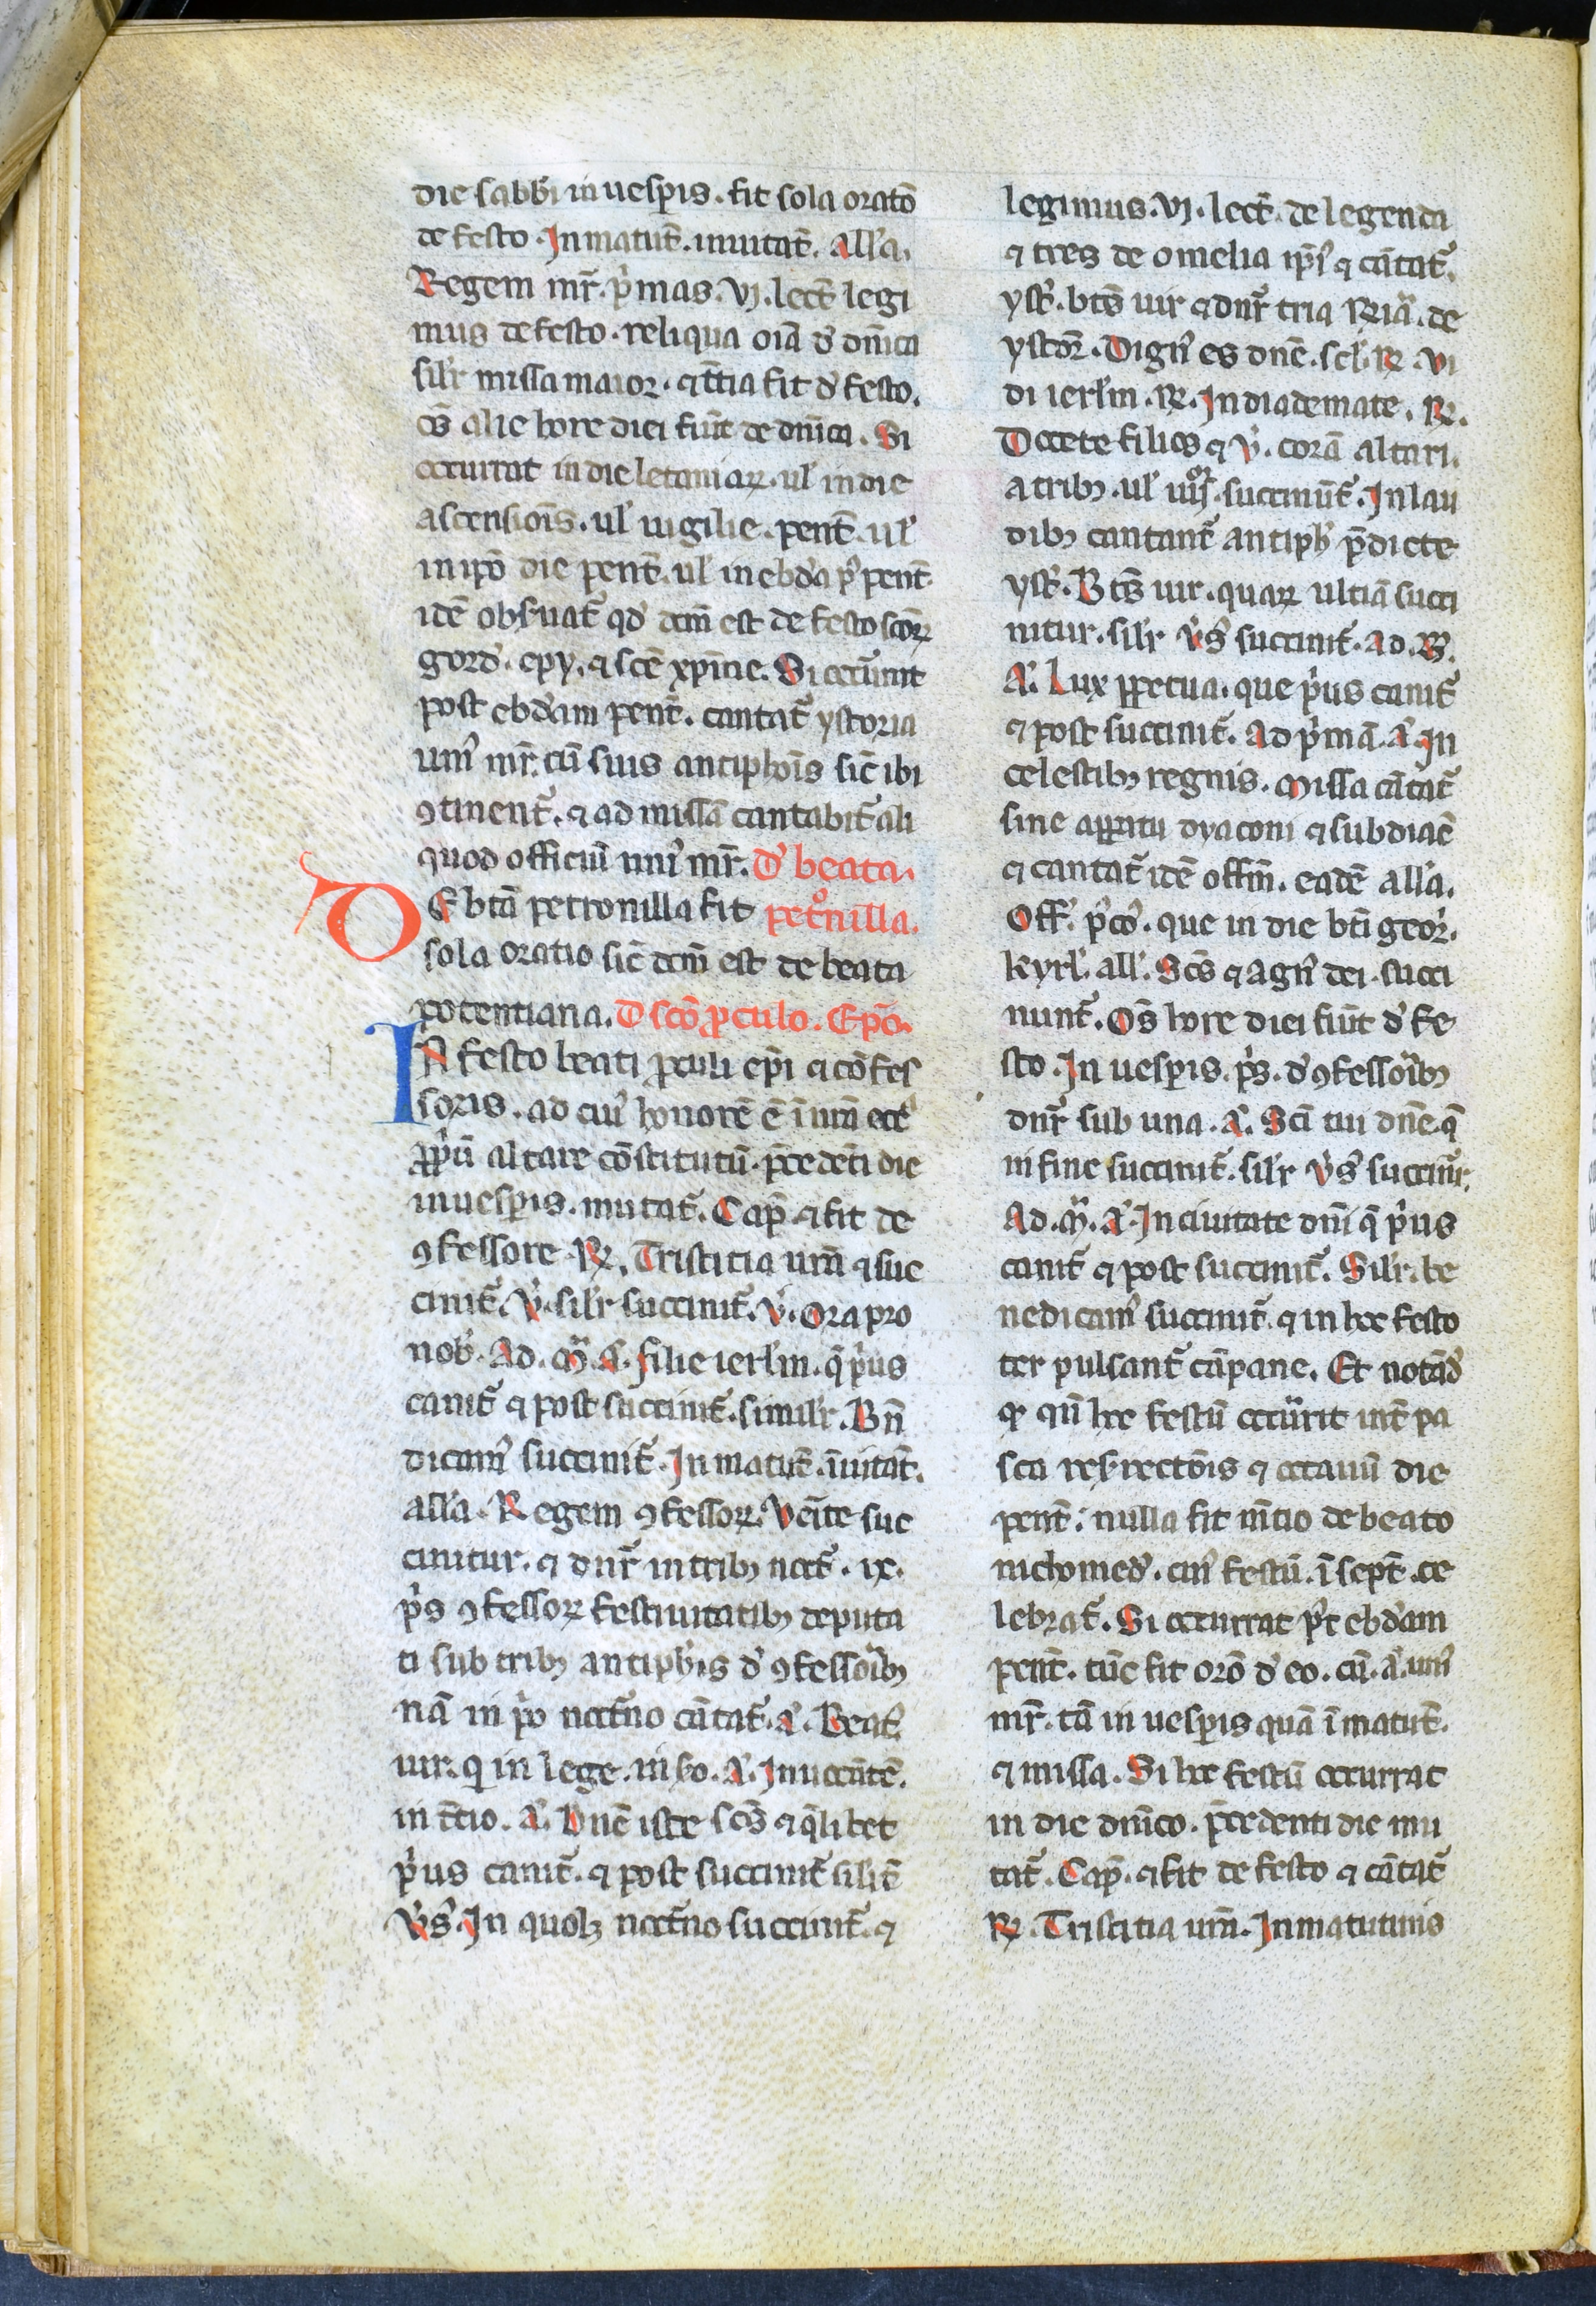 die sabb̄i in uesp̄is. fit sola orato᷑
de festo. In matut̄. inuitat̄. all'a.
Regem mr̄. p'mas. vj. lect̄ legi
mus de festo. reliqua oīa d' dn̄ica
sil'r missa maior. ⁊ t̄cia fit d' festo.
oēs alie hore diei fiūt de dn̄ica. Si
occurrat in die letaniaꝝ. ul' in die
ascensiōis. ul' uigilie. pent̄. ul'
in ip̄o die pent̄. ul' in ebd'a p' pent̄
idē obseruat̄ qd' dc̄m est de festo scōꝝ
gord'. epy. ⁊ scē xp̄ine. Si occurrunt
post ebd'am pent̄. cantat̄ ystoria
uni' mr̄. cū suis antiphōis sic̄ ibi
ꝯtinent̄. ⁊ ad missā cantabit̄ ali
quod officiū uni' mr̄. D' beata.
DE btā petronilla fit pet'nilla.
sola oratio sic̄ dc̄m est de beata
potentiana. D scō ꝓculo. Ep̄o.
IN festo beati ꝓculi ep̄i ⁊ cōfes
soris. ad cui' honorē ē ī nr̄a ecc̄a
ꝓp'ū altare cōstitutū. p̄cedēti die
in uesp̄is. mutat̄. Cap̄. ⁊ fit de
ꝯfessore ℟. Tristitia ur̄a ⁊ suc
cinit̄. ℣. sil'r succinit̄. ℣. Ora pro
nob'. Ad. M̄. A'. filie ierl'm. q̄ p'us
canit̄ ⁊ post succinit̄. simil'r. Bn̄
dicam' succinit̄. In matut̄. īuitat̄.
all'a. Regem ꝯfessoꝝ. Venite suc
cinitur. ⁊ dn̄r in tribꝫ noct̄. ix.
p̄s ꝯfessoꝝ festiuitatibꝫ deputa
ti sub tribꝫ antiph'is d' ꝯfessoribꝫ
nā in p'o noct̄no cātat̄. A'. Beat'
uir. q' in lege. in sc̄do. A'. Inuocātē.
in t̄cio. A'. Dn̄e iste sc̄s ⁊ q̄libet
p'us canit̄. ⁊ post succinit̄ silit̄
℣s'. In quolꝫ noct̄no succinit̄. ⁊
legimus. vj. lect̄. de legenda
⁊ tres de omelia ip̄i' ⁊ cātat̄.
yst̄. bt̄s uir ⁊ dn̄r tria ℟ia. de
ystor̄. Dign' es dn̄e. scl'. ℟. Vi
di ierl'm. ℟. In diademate. ℟.
Docete filios ⁊ ℣. corā altari.
a tribꝫ. ul' iiijor. succinūt̄. In lau
dibꝫ cantant̄ antiph' p̄dicte
yst'. Bt̄s uir. quaꝝ ultīā succi
nitur. sil'r ℣s' succinit̄. ad. B'.
A'. Lux ꝑpetua. que p'us canit̄
⁊ post succinit̄. Ad p'mā. A'. In
celestibꝫ regnis. Missa cātat̄
sine apꝑatu dyaconi ⁊ subdiac̄
⁊ cantat̄ idē offm̄. eadē all'a.
Off'. p̄co'. que in die bt̄i geor'.
kyrl'. all'. Sc̄s ⁊ agn' dei. succi
nunt̄. Oēs hore diei fiūt d' fe
sto. In uesp̄is. p̄s. d' ꝯfessoribꝫ
dn̄r sub una. A'. Sc̄i tui dn̄e. q̄
in fine succinit̄. sil'r ℣s' succinit̄.
Ad. M̄. A'. In ciuitate dn̄i q̄ p'us
canit̄ ⁊ post succinit̄. Sil'r. be
nedicam' succinit̄. ⁊ in hoc festo
ter pulsant̄ cāpane. Et notād'
qꝛ qn̄ hoc festū occurrit int̄ pa
sca resurrectōis ⁊ octauū die
pent̄. nulla fit mētio de beato
nichomed'. cui' festū. ī sept̄. ce
lebrat̄. Si occurrat p't ebd'am
pent̄. tūc fit orō d' eo. cū. A'. uni'
mr̄. tā in uesp̄is quā ī matut̄.
⁊ missa. Si hoc festū occurrat
in die dn̄ico. p̄cedenti die mu
tat̄. Cap̄. ⁊ fit de festo ⁊ cātat̄
℟. Tristitia ur̄a. In matutinis